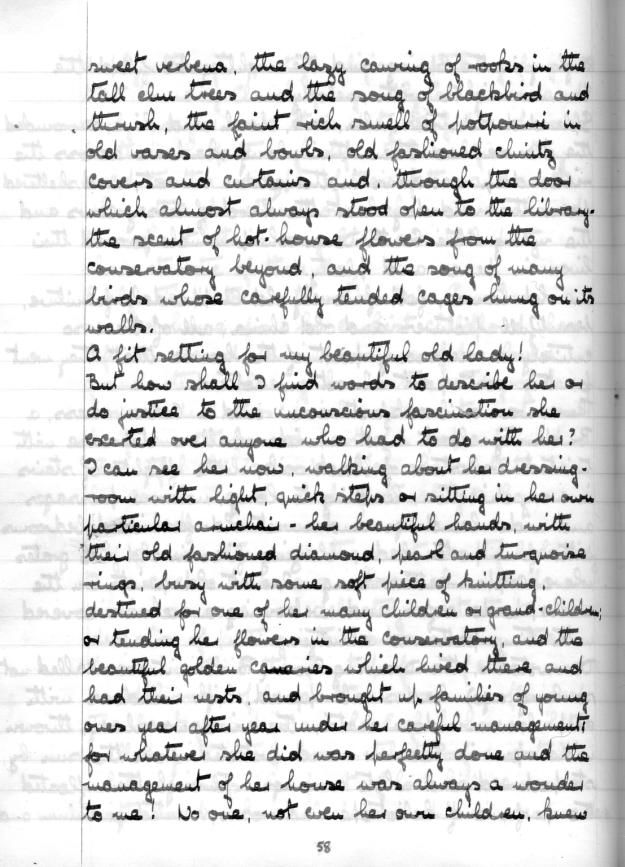 sweet verbena, the lazy cawing of rooks in the
tall elm trees and the song of blackbird and
thrush, the faint rich smell of potpourri in
old vases and bowls, old fashioned chintz
covers and curtains and, through the door
which almost always stood open to the library-
the scent of hot-house flowers from the
conservatory beyond, and the song of many
birds whose carefully tended cages hung on its
walls.
A fit setting for my beautiful old lady!
But how shall I find words to describe her or
do justice to the unconscious fascination she
exerted over anyone who had to do with her?
I can see her now, walking about her dressing-
room with light, quick steps or sitting in her own
particular armchair - her beautiful hands, with
their old fashioned diamond, pearl and turquoise
rings, busy with some soft piece of knitting,
destined for one of her many children or grand-children;
or tending her flowers in the conservatory, and the
beautiful golden canaries which lived there and
had their nests, and brought up families of young
ones year after year under her careful management;
for whatever she did was perfectly done and the
management of her house was always a wonder
to me! No one, not even her own children, knew
58